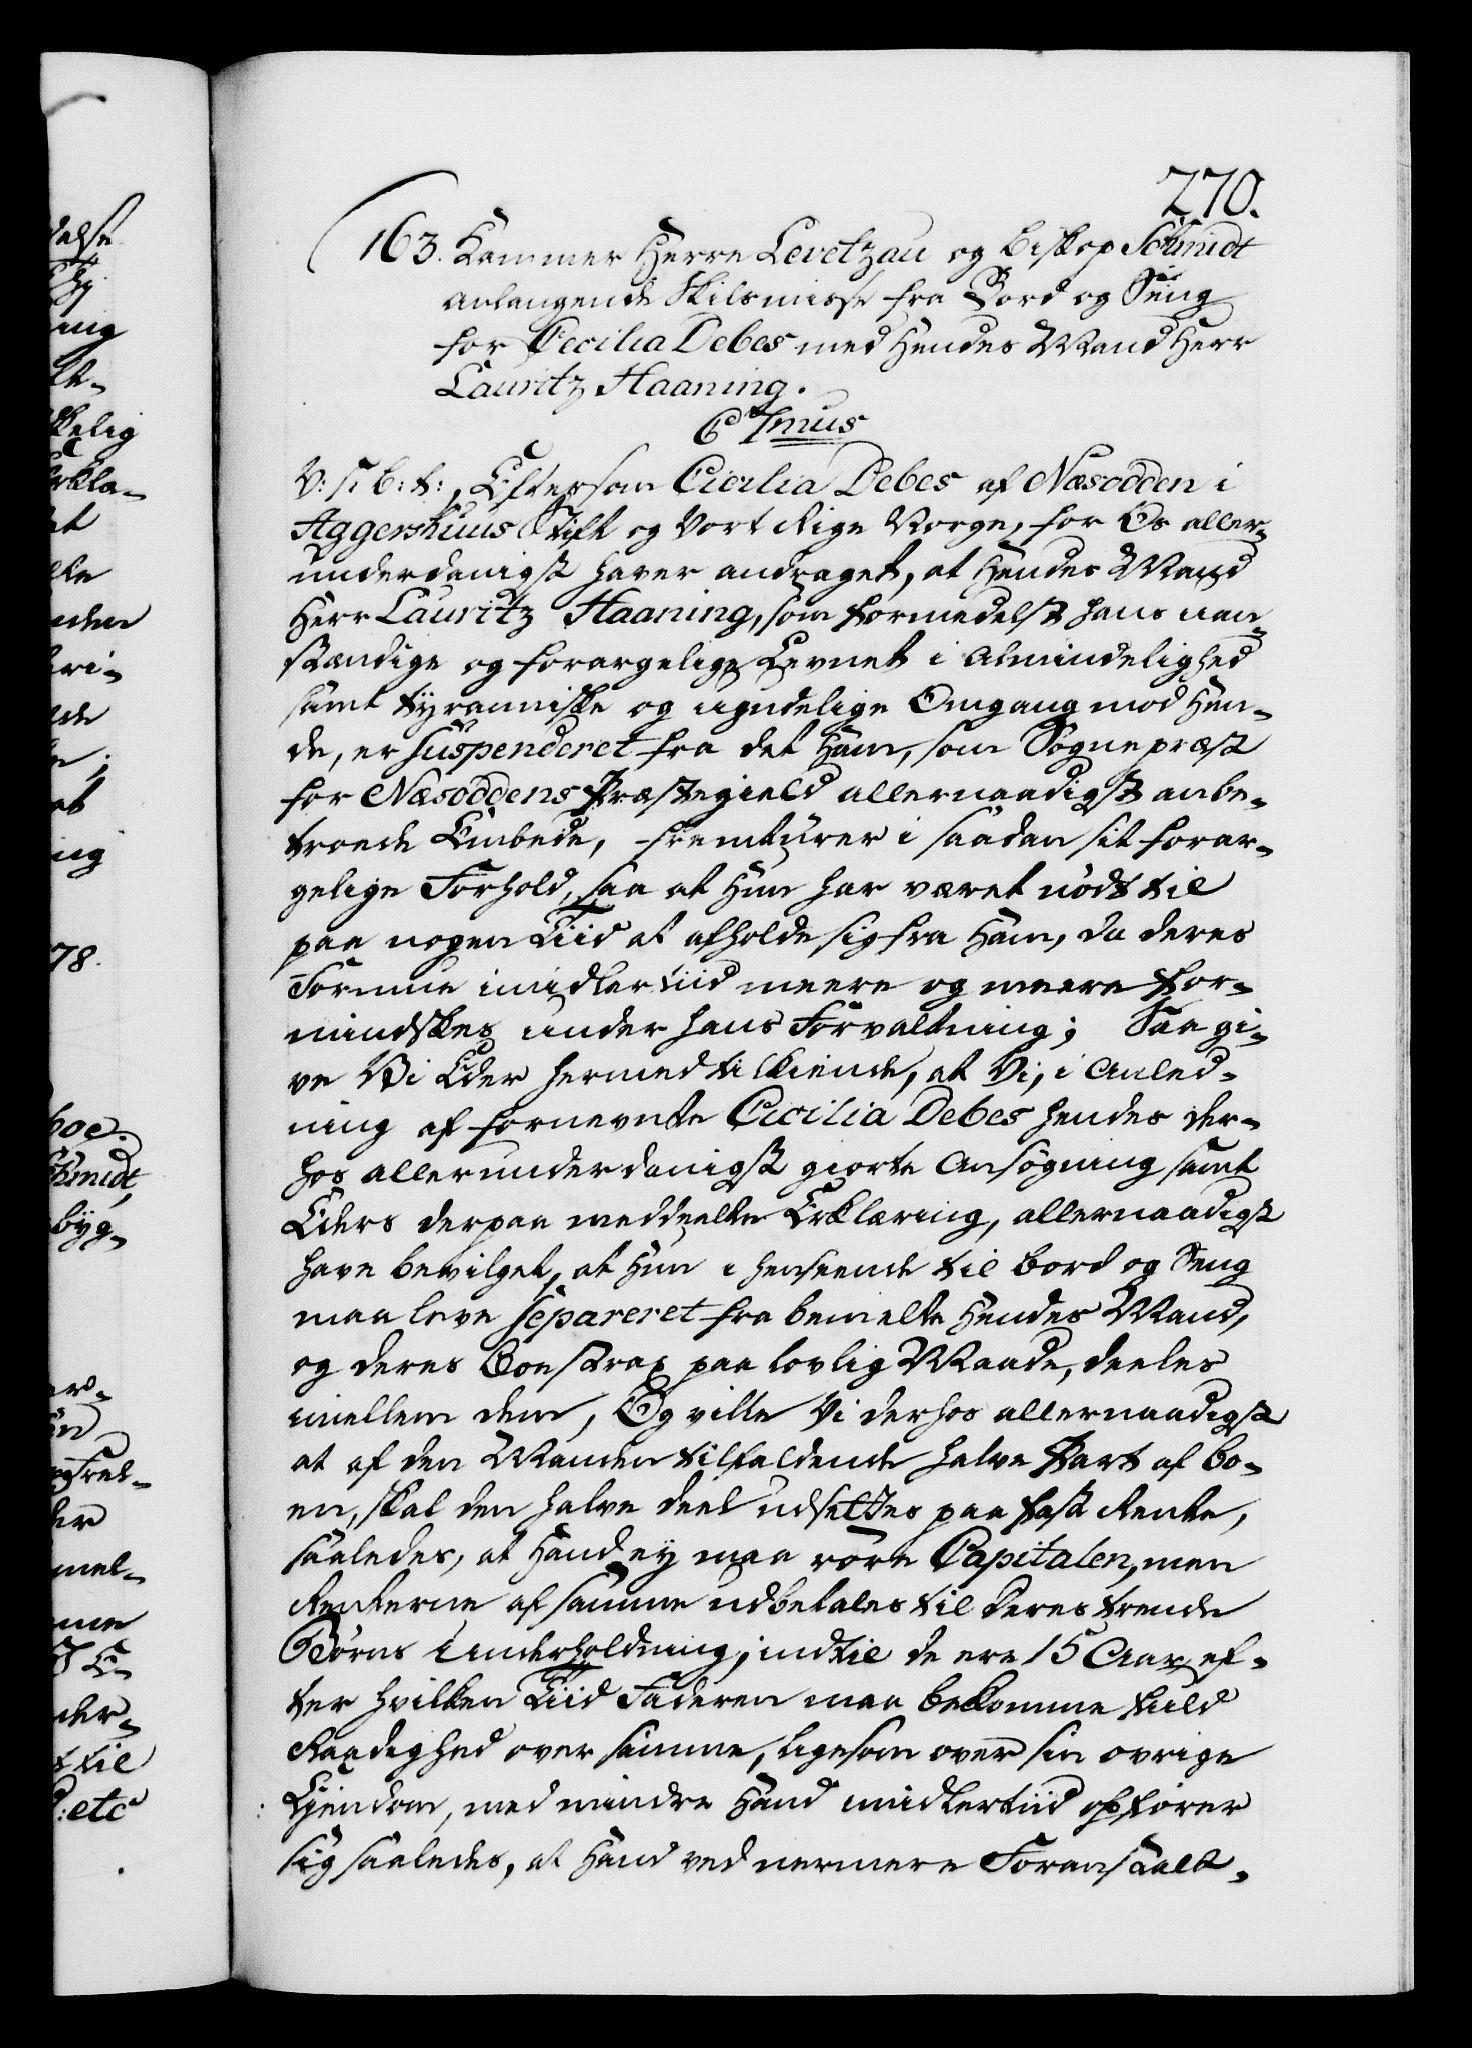 270.
163. Kammer Herre Levetzau og Biskop Schmidt
anlangende Skilsmisse fra Bord og Seng
for Cecilia Debes med Hendes Mand Herr
Lauritz Haaning.
C 7mus
V: S: B: t:, Eftersom Cicilia Debes af Næsodden i
Aggershuus Stift og Vort Rige Norge, for Os aller-
underdanigst haver andraget, at Hendes Mand
Herr Lauritz Haaning, som formedelst hans uan-
stændige og forargelige Levnet i Almindelighed
samt tyranniske og ugudelige Omgang mod Hen-
de, er suspenderet fra det Ham, som Sogneprest
for Næsoddens Præstegield allernaadigst anbe-
troede Embede, fremturer i saadan sit forar-
gelige Forhold, saa at Hun har været nödt til
paa nogen Tiid at afholde sig fra Ham, da deres
Formue imidlertiid meere og meere for-
mindskes under hans Forvaltning; Saa gi-
ve Vi Eder hermed tilkiende, at Vi, i Anled-
ning af fornevnte Cicilia Debes hendes der-
hos allerunderdanigst giorte Ansögning samt
Eders derpaa meddeelte Erklæring, allernaadigst
have bevilget, at Hun i henseende til Bord og Seng
maa leve separeret fra bemelte Hendes Mand,
og deres Boe strax paa lovlig Maade, deeles
imellem dem, Og ville Vi derhos allernaadigst
at af den Manden tilfaldende halve Part af Bo-
en, skal den halve deel udsettes paa fast Rente,
saaledes, at Hand ey maa röre Capitalen, men
Renterne af samme udbetales til deres trende
Börns Underholdning, indtil de ere 15 Aar, ef-
ter hvilken Tiid Faderen maa bekomme fuld
Raadighed over samme, ligesom over sin övrige
Ejendom, med mindre Hand midlertiid opförer
sig saaledes, at Hand ved nermere Foranstalt-